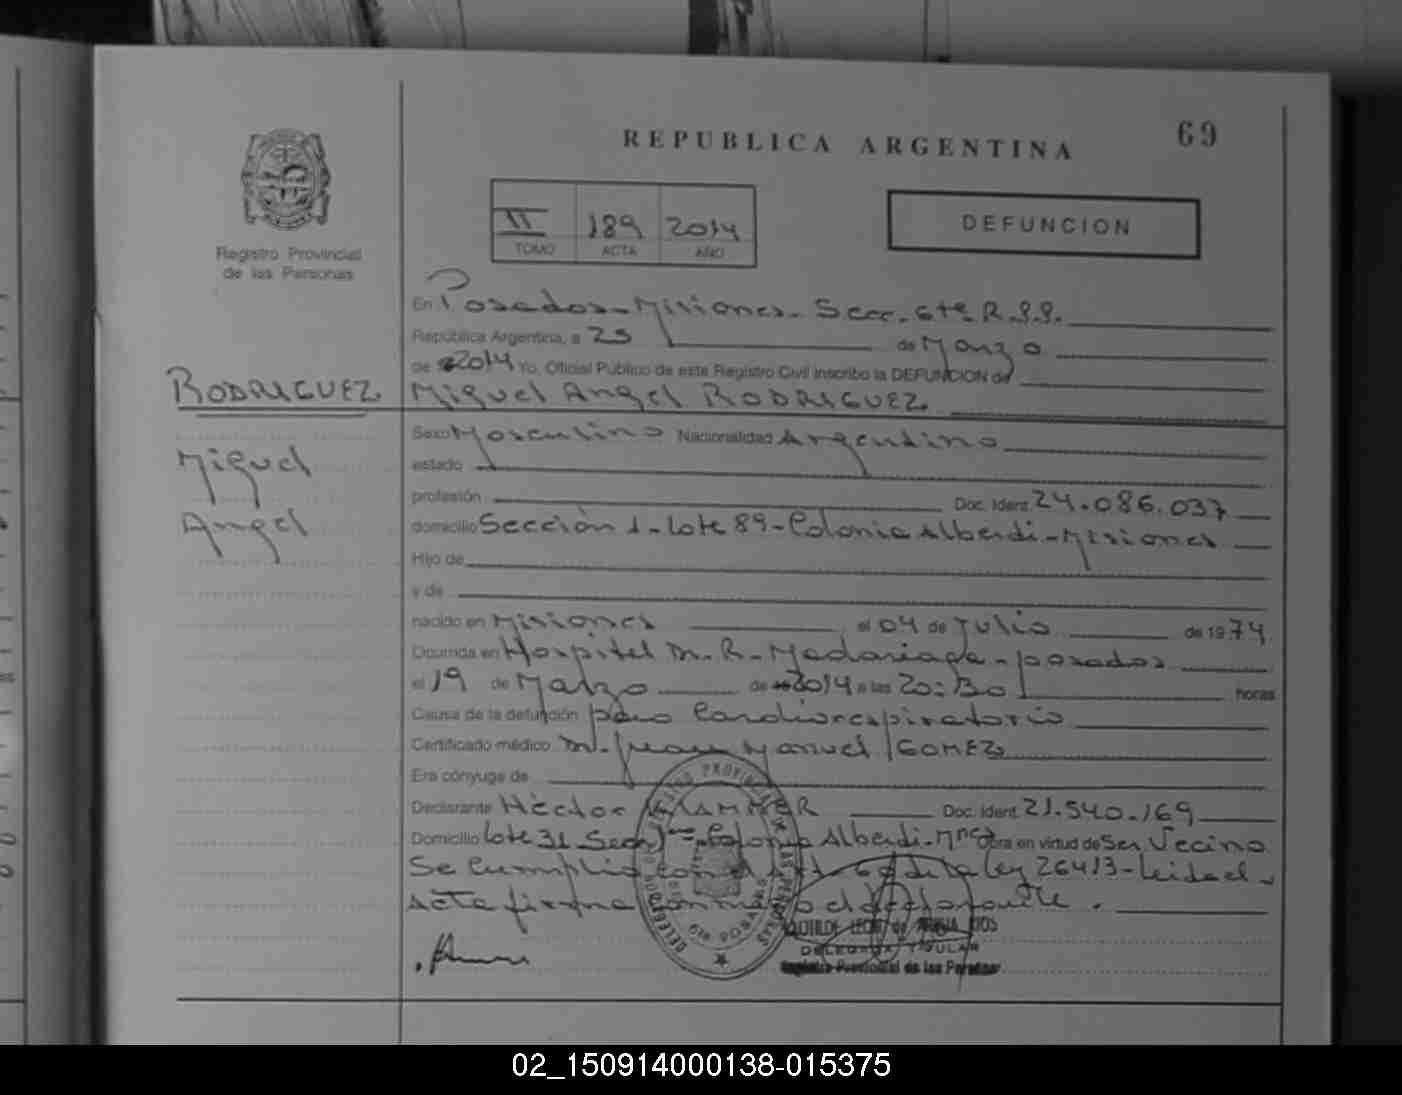 69
REPUBLICA ARGENTINA
DEFUNCION
II 189 2014
TOMO ACTA AÑO
Registro Provincial
de las Personas
En Posadas - Misiones - Secc. 6ta R.P.P.
República Argentina, a 25 de Marzo
de 2014 Yo, Oficial Público de este Registro Civil inscribo la DEFUNCION de
RODRIGUEZ
Miguel
Angel
Miguel Angel RODRIGUEZ
Sexo Masculino Nacionalidad Argentino
estado
profesión Doc. Ident. 24.086.037
domicilio Sección 1 - Lote 89 - Colonia Alberdi - Misiones
Hijo de
y de
nacido en Misiones el 04 de Julio de 1974
Ocurrida en Hospital Dr. R. Madariaga - Posadas
el 19 de Marzo de 2014 a las 20:30 horas
Causa de la defunción paro Cardiorespiratorio
Certificado médico Dr. Juan Manuel GOMEZ
Era cónyuge de
Declarante Héctor KRAMMER Doc. Ident. 21.540.169
Domicilio Lote 31 Colonia Alberdi - Mnes Obra en virtud de Ser Vecino
Se Cumplio con el Art. de la Ley 26413 - Leida el
Acta firma conmigo el declarante.
CLOTILDE
DELEGADA TITULAR
Registro Provincial de las Personas
02_150914000138-015375